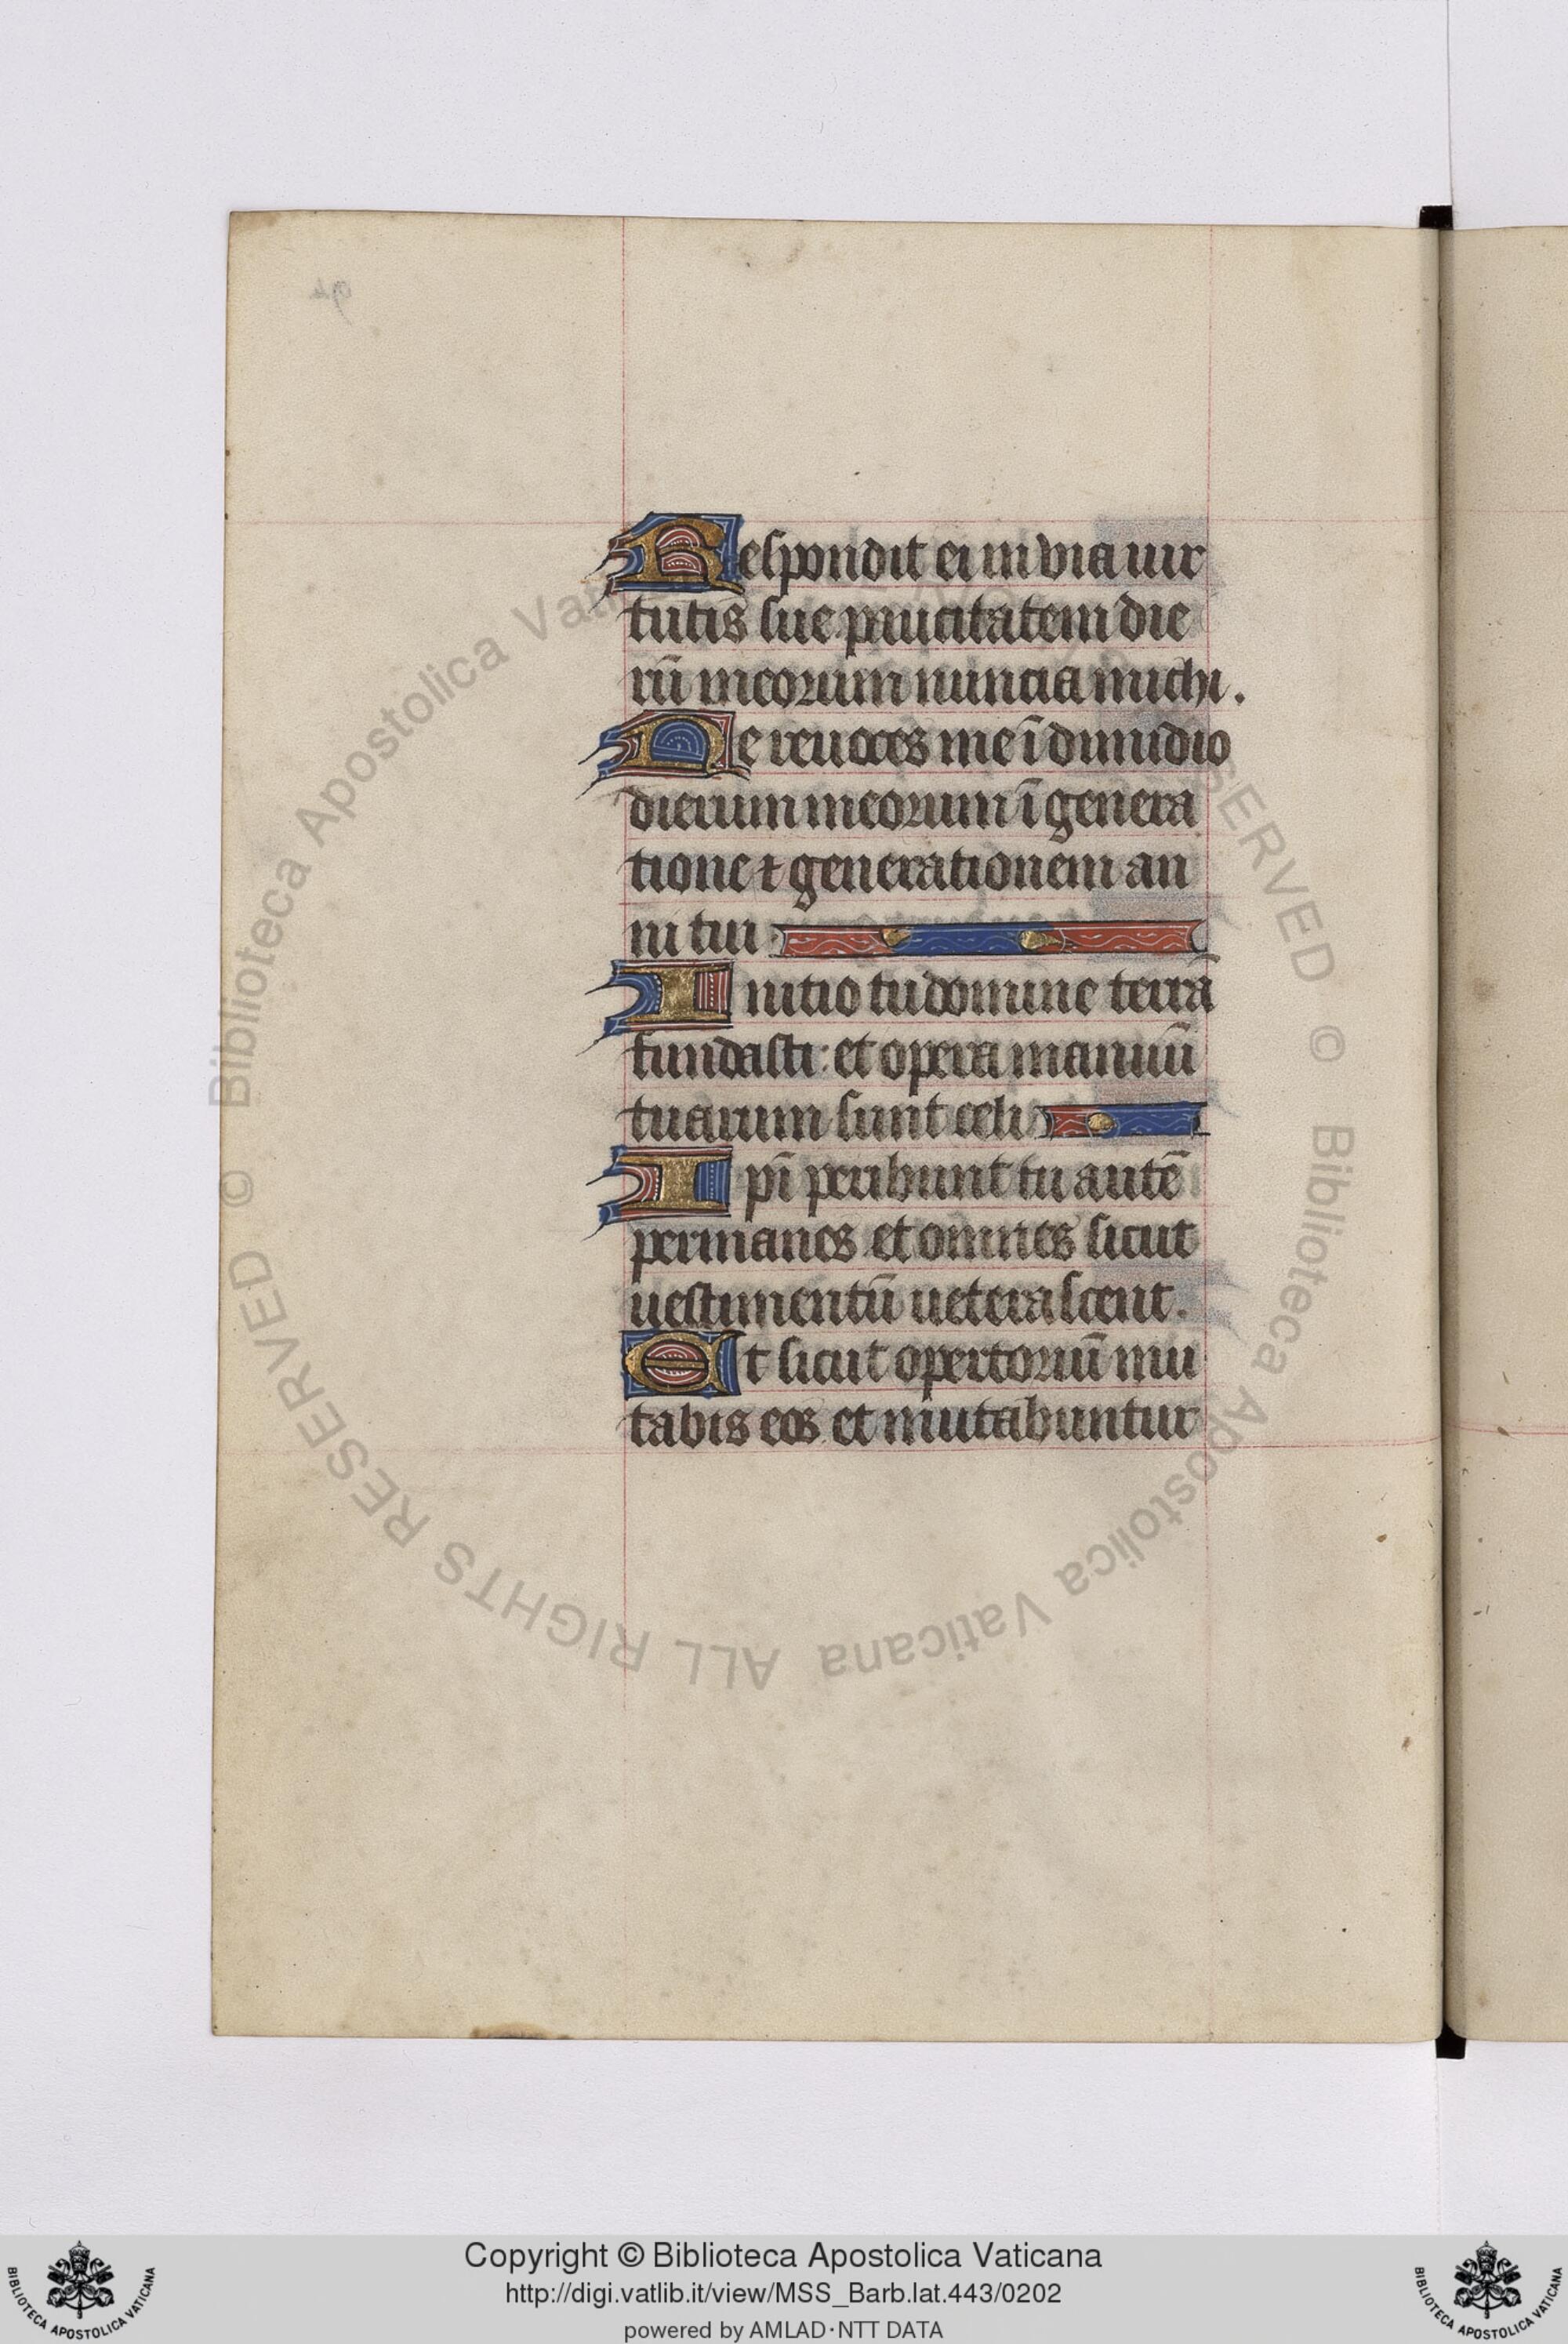 Respondit ei in via uir
tutis sue paucitatem die
rū meorum nuncia michi.
Ne reuoces me ī dimidio
dierum meorum ī genera
tione ⁊ generationem an
ni tui
Initio tu domine terrā
fundasti: et opera manuū
tuarum sunt celi
Ipī peribunt tu autē
permanes et omnes sicut
uestimentū ueterascent.
Et sicut opertoriū mu
tabis eos et mutabuntur
© Biblioteca Apostolica Vaticana ALL RIGHTS RESERVED © Biblioteca Apostolica Vaticana ALL RIGHTS RESERVED
Copyright © Biblioteca Apostolica Vaticana
http://digi.vatlib.it/view/MSS_Barb.lat.443/0202
powered by AMLAD·NTT DATA
BIBLIOTECA APOSTOLICA VATICANA
BIBLIOTECA APOSTOLICA VATICANA